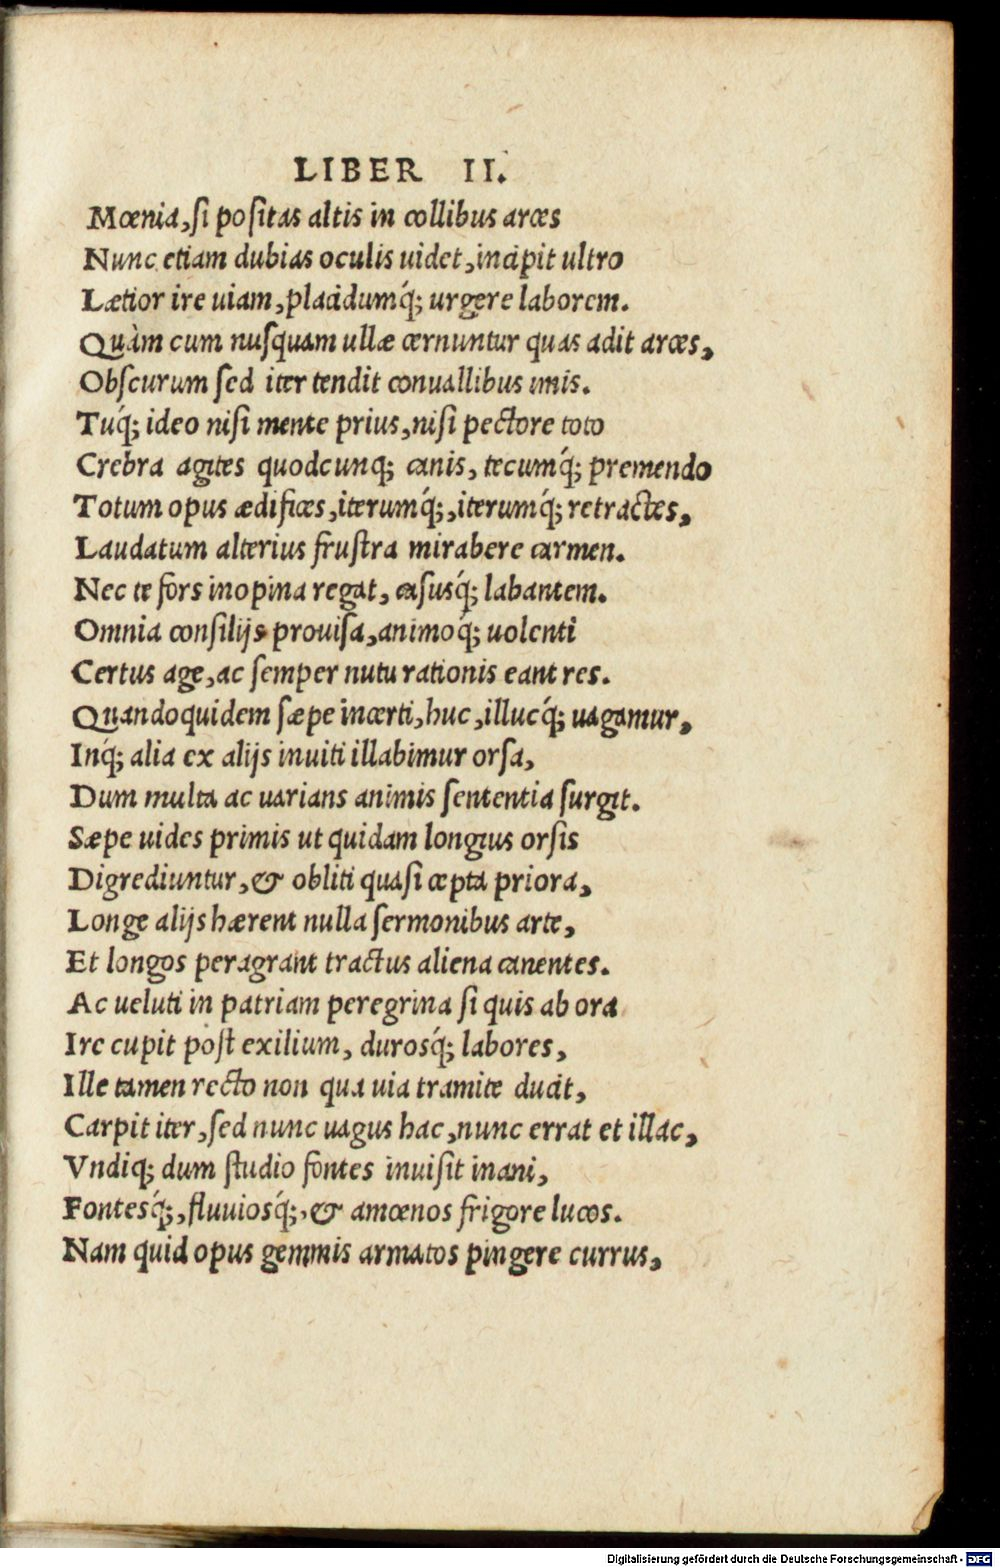 LIBER II.
Mœnia, ſi poſitas altis in collibus arces
Nunc etiam dubias oculis uidet, incipit ultro
Lætior ire uiam, placidumq́; urgere laborem.
Quàm cum nuſquam ullæ cernuntur quas adit arces,
Obſcurum ſed iter tendit conuallibus imis.
Tuq́; ideo niſi mente prius, niſi pectore toto
Crebra agites quodcunq; canis, tecumq́; premendo
Totum opus ædifices, iterumq́;, iterumq́; retractes,
Laudatum alterius fruſtra mirabere carmen.
Nec te fors inopina regat, caſusq́; labantem.
Omnia conſilijs prouiſa, animoq́; uolenti
Certus age, ac ſemper nutu rationis eant res.
Quandoquidem ſæpe incerti, huc, illucq́; uagamur,
Inq́; alia ex alijs inuiti illabimur orſa,
Dum multa ac uarians animis ſententia ſurgit.
Sæpe uides primis ut quidam longius orſis
Digrediuntur, & obliti quaſi cœpta priora,
Longe alijs hærent nulla ſermonibus arte,
Et longos peragrant tractus aliena canentes.
Ac ueluti in patriam peregrina ſi quis ab ora
Ire cupit poſt exilium, durosq́; labores,
Ille tamen recto non qua uia tramite ducit,
Carpit iter, ſed nunc uagus hac, nunc errat et illac,
Vndiq; dum ſtudio fontes inuiſit inani,
Fontesq́;, fluuiosq́;, & amœnos frigore lucos.
Nam quid opus gemmis armatos pingere currus,
Digitalisierung gefördert durch die Deutsche Forschungsgemeinschaft - DFG